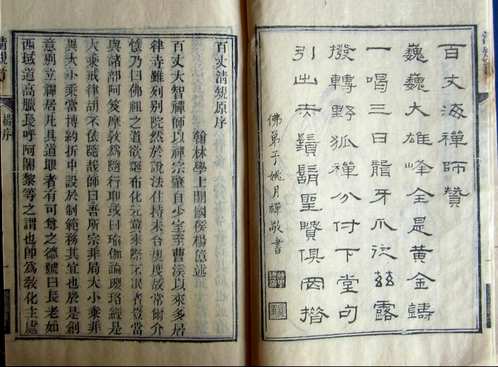 百丈海禪師贊
巍巍大雄峰全是黃金鑄
一喝三日聾牙爪從茲露
撥轉野狐禪分付下堂句
引出鬚聖賢俱罔措
佛弟子姚月禪敬書
百丈清規原序
翰林學士開國侯楊億述
百丈大智禪師以禪宗肇自少室至曹溪以來多居
律寺雖列別院然於說法住持未合規度故常爾介
懷乃曰佛祖之道欲誕布化元冀來際不泯者豈當
與諸部阿笈摩教為隨行耶或曰瑜伽論瓔珞經是
大乘戒律胡不依隨哉師曰吾所宗非局大小乘非
異大小乘當博約折中設於制範務其宜也於是創
意別立禪居凡具道眼者有可尊之德號曰長老如
西域道高臘長呼阿闍黎等之謂也即為教化主處
清規
楊序